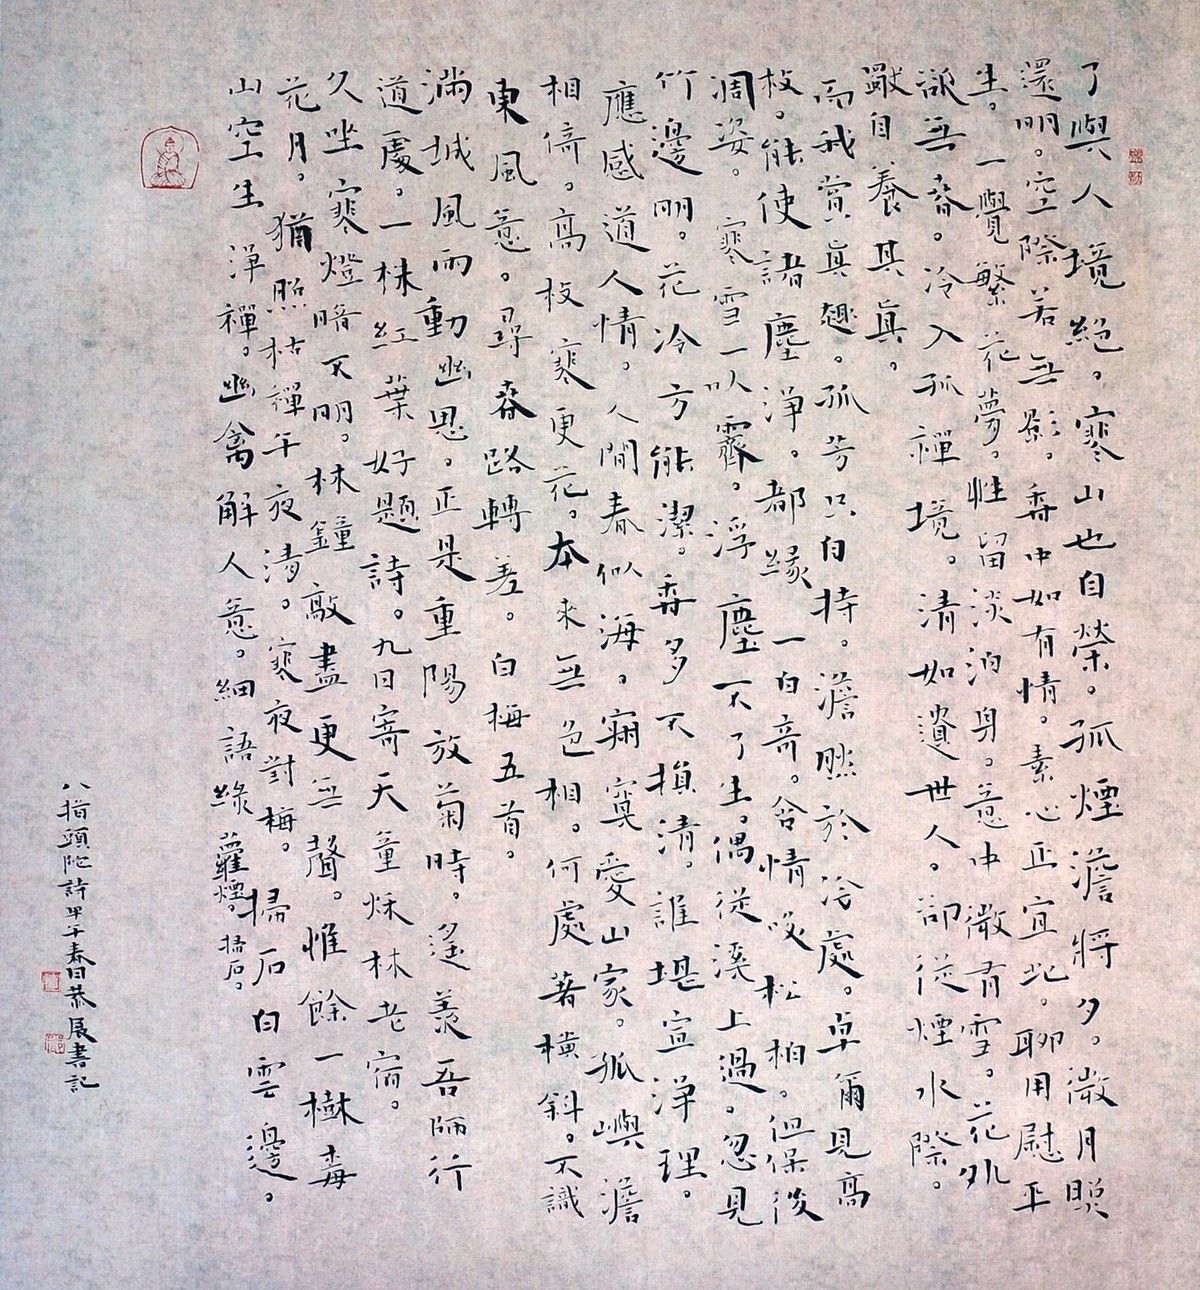 了與人境絕。寒山也自榮。孤煙澹將夕。微月照
還明。空際若無影。香中如有情。素心正宜此。聊用慰平
生。一覺繁花夢。性留淡泊身。意中微有雪。花外
欲無春。冷入孤禪境。清如遺世人。卻從煙水際。
自養其真。
而我賞真趣。孤芳只自持。澹然於冷處。卓爾見高
枝。能使諸塵淨。都緣一白奇。含情笑松柏。但保後
凋姿。寒雪一以霽。浮塵不了生。偶從溪上過。忽見
竹邊明。花冷方能潔。香多不損清。誰堪宣淨理。
應感道人情。人間春似海。寂寞愛山家。孤嶼澹
相倚。高枝寒更花。本來無色相。何處著橫斜。不識
東風意。尋春路轉差。白梅五首。
滿城風雨動幽思。正是重陽放菊時。遙羨吾師行
道處。一株紅葉好題詩。九日寄天童秋林老宿。
久坐寒燈暗不明。林鐘敲盡更無聲。惟餘一樹梅
花月。猶照枯禪午夜清。寒夜對梅。掃石白雲邊。
山空生淨禪。幽禽解人意。細語綠蘿煙。掃石。
八指頭陀詩甲午春日恭展書記